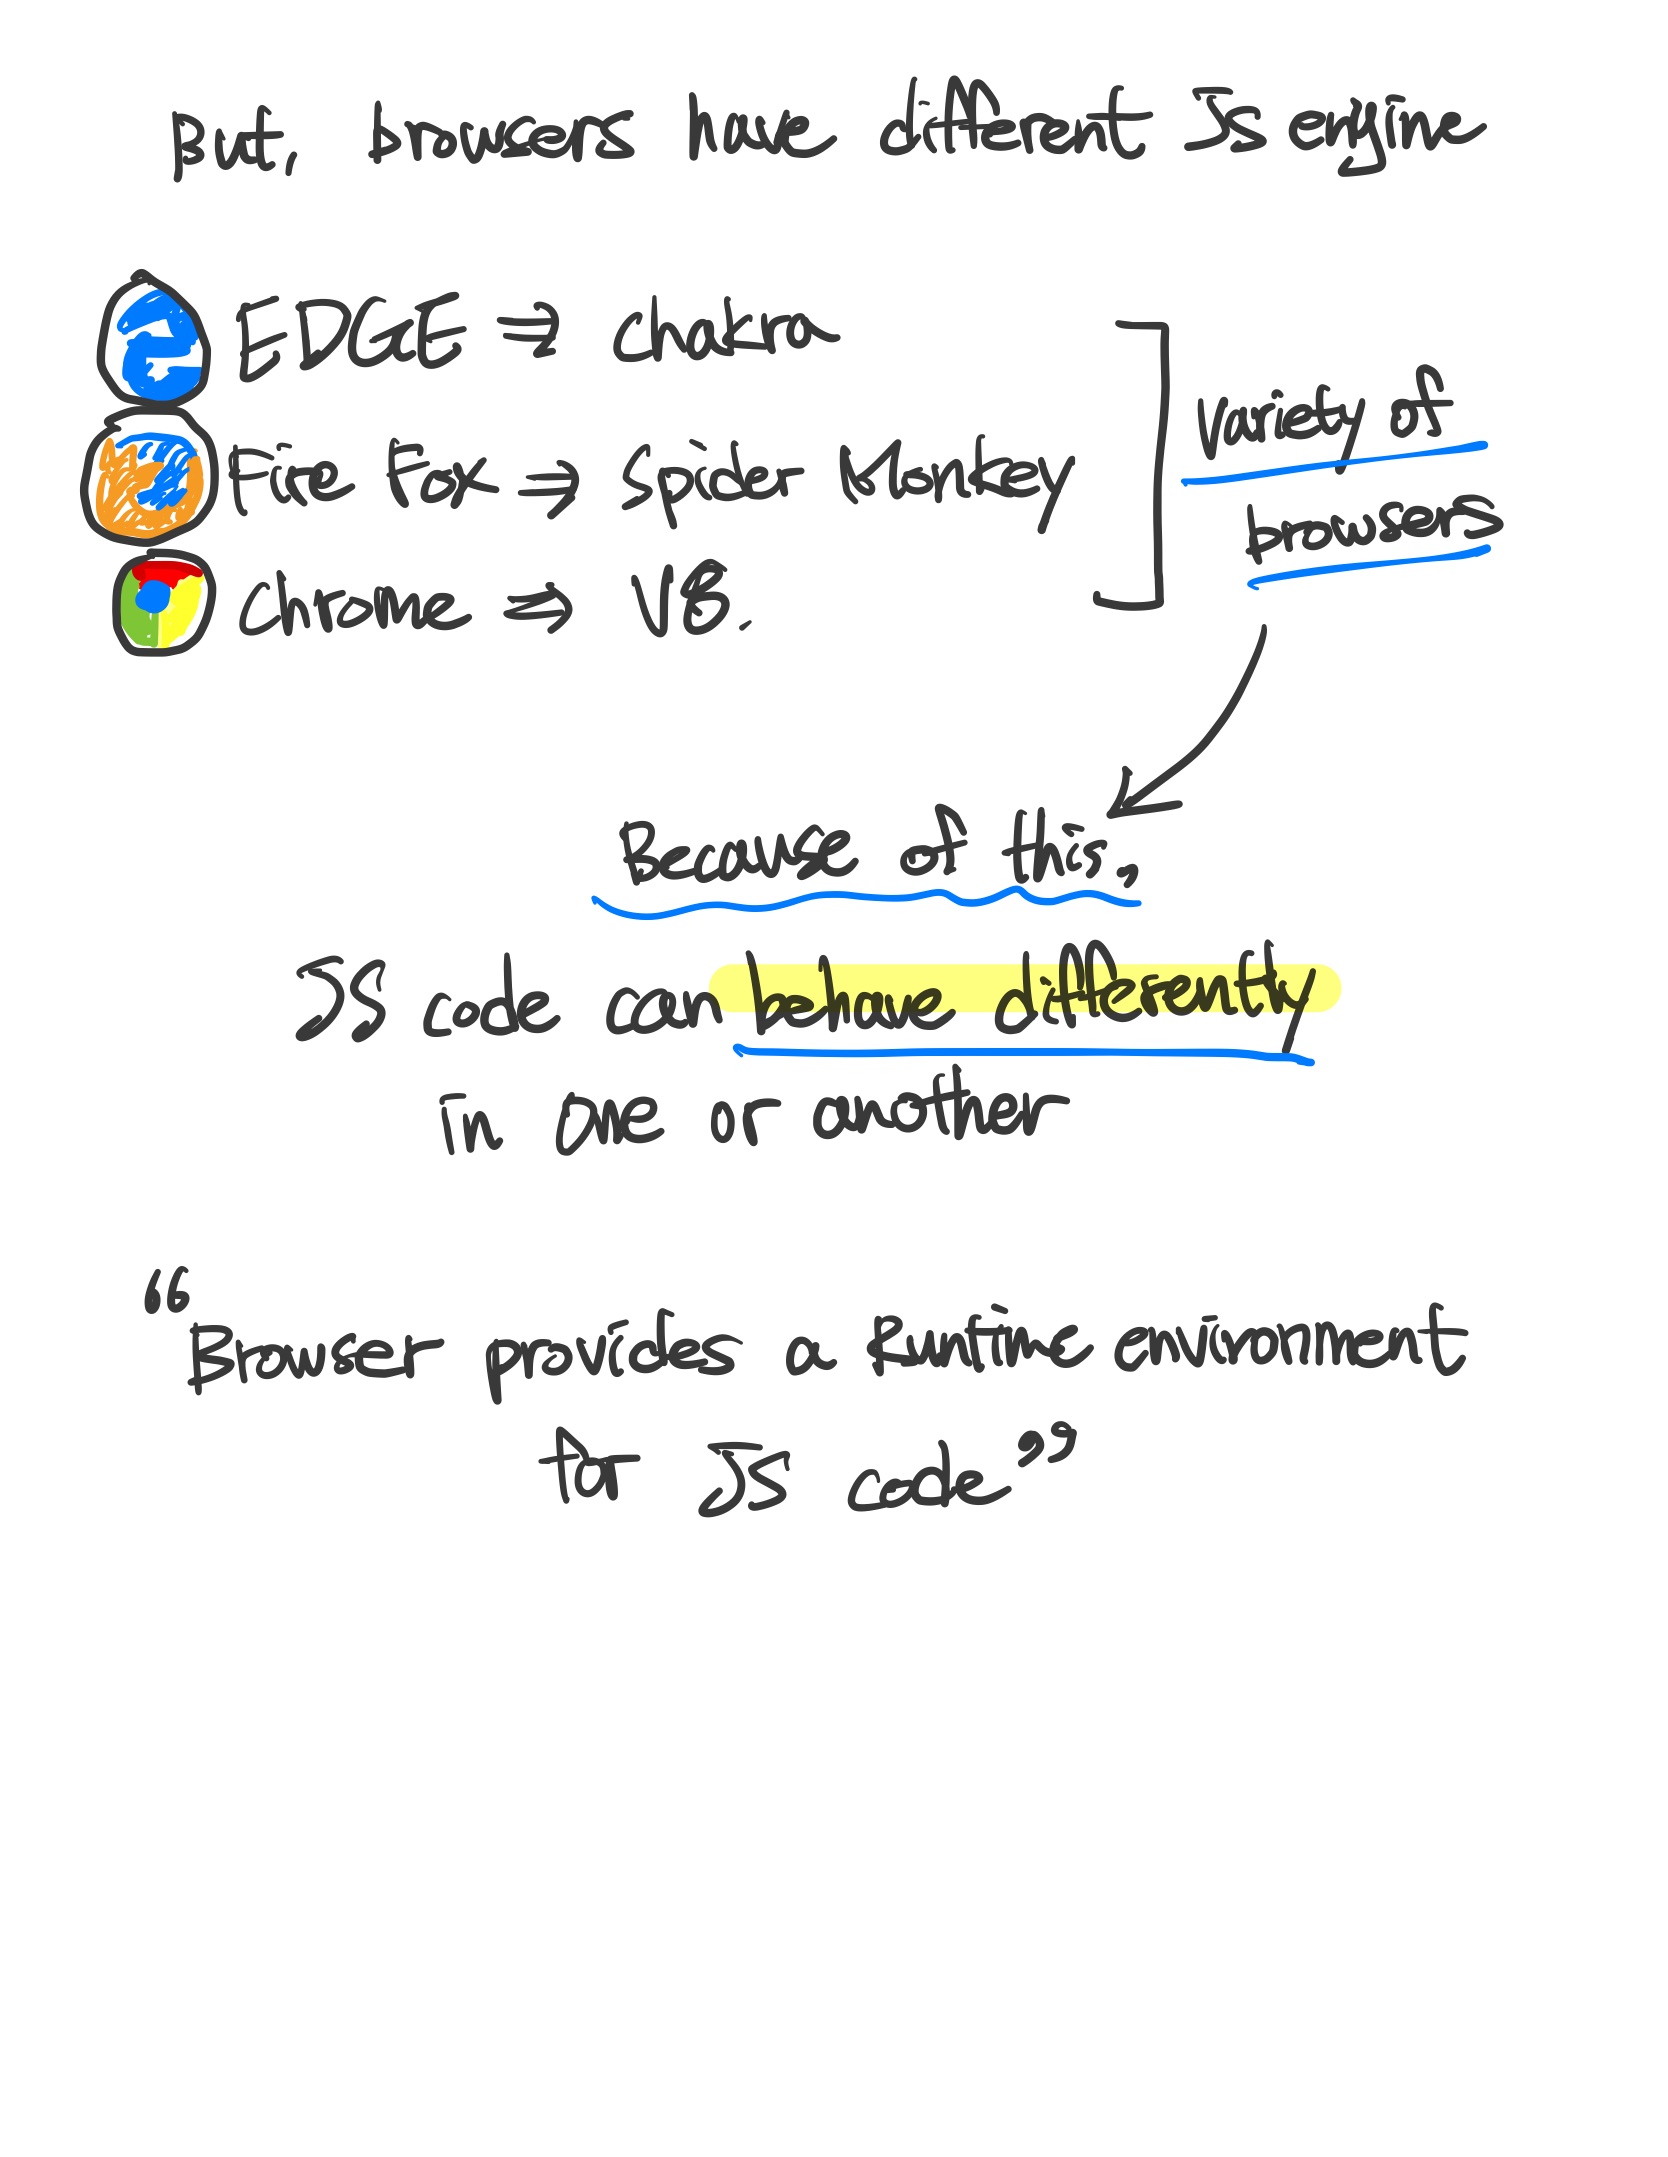 But, browsers have different JS engine
EDGE ⇒ chakra
Fire Fox ⇒ Spider Monkey
chrome ⇒ V8.
Variety of
browsers
Because of this,
JS code can behave differently
in one or another
“Browser provides a Runtime environment
for JS code”